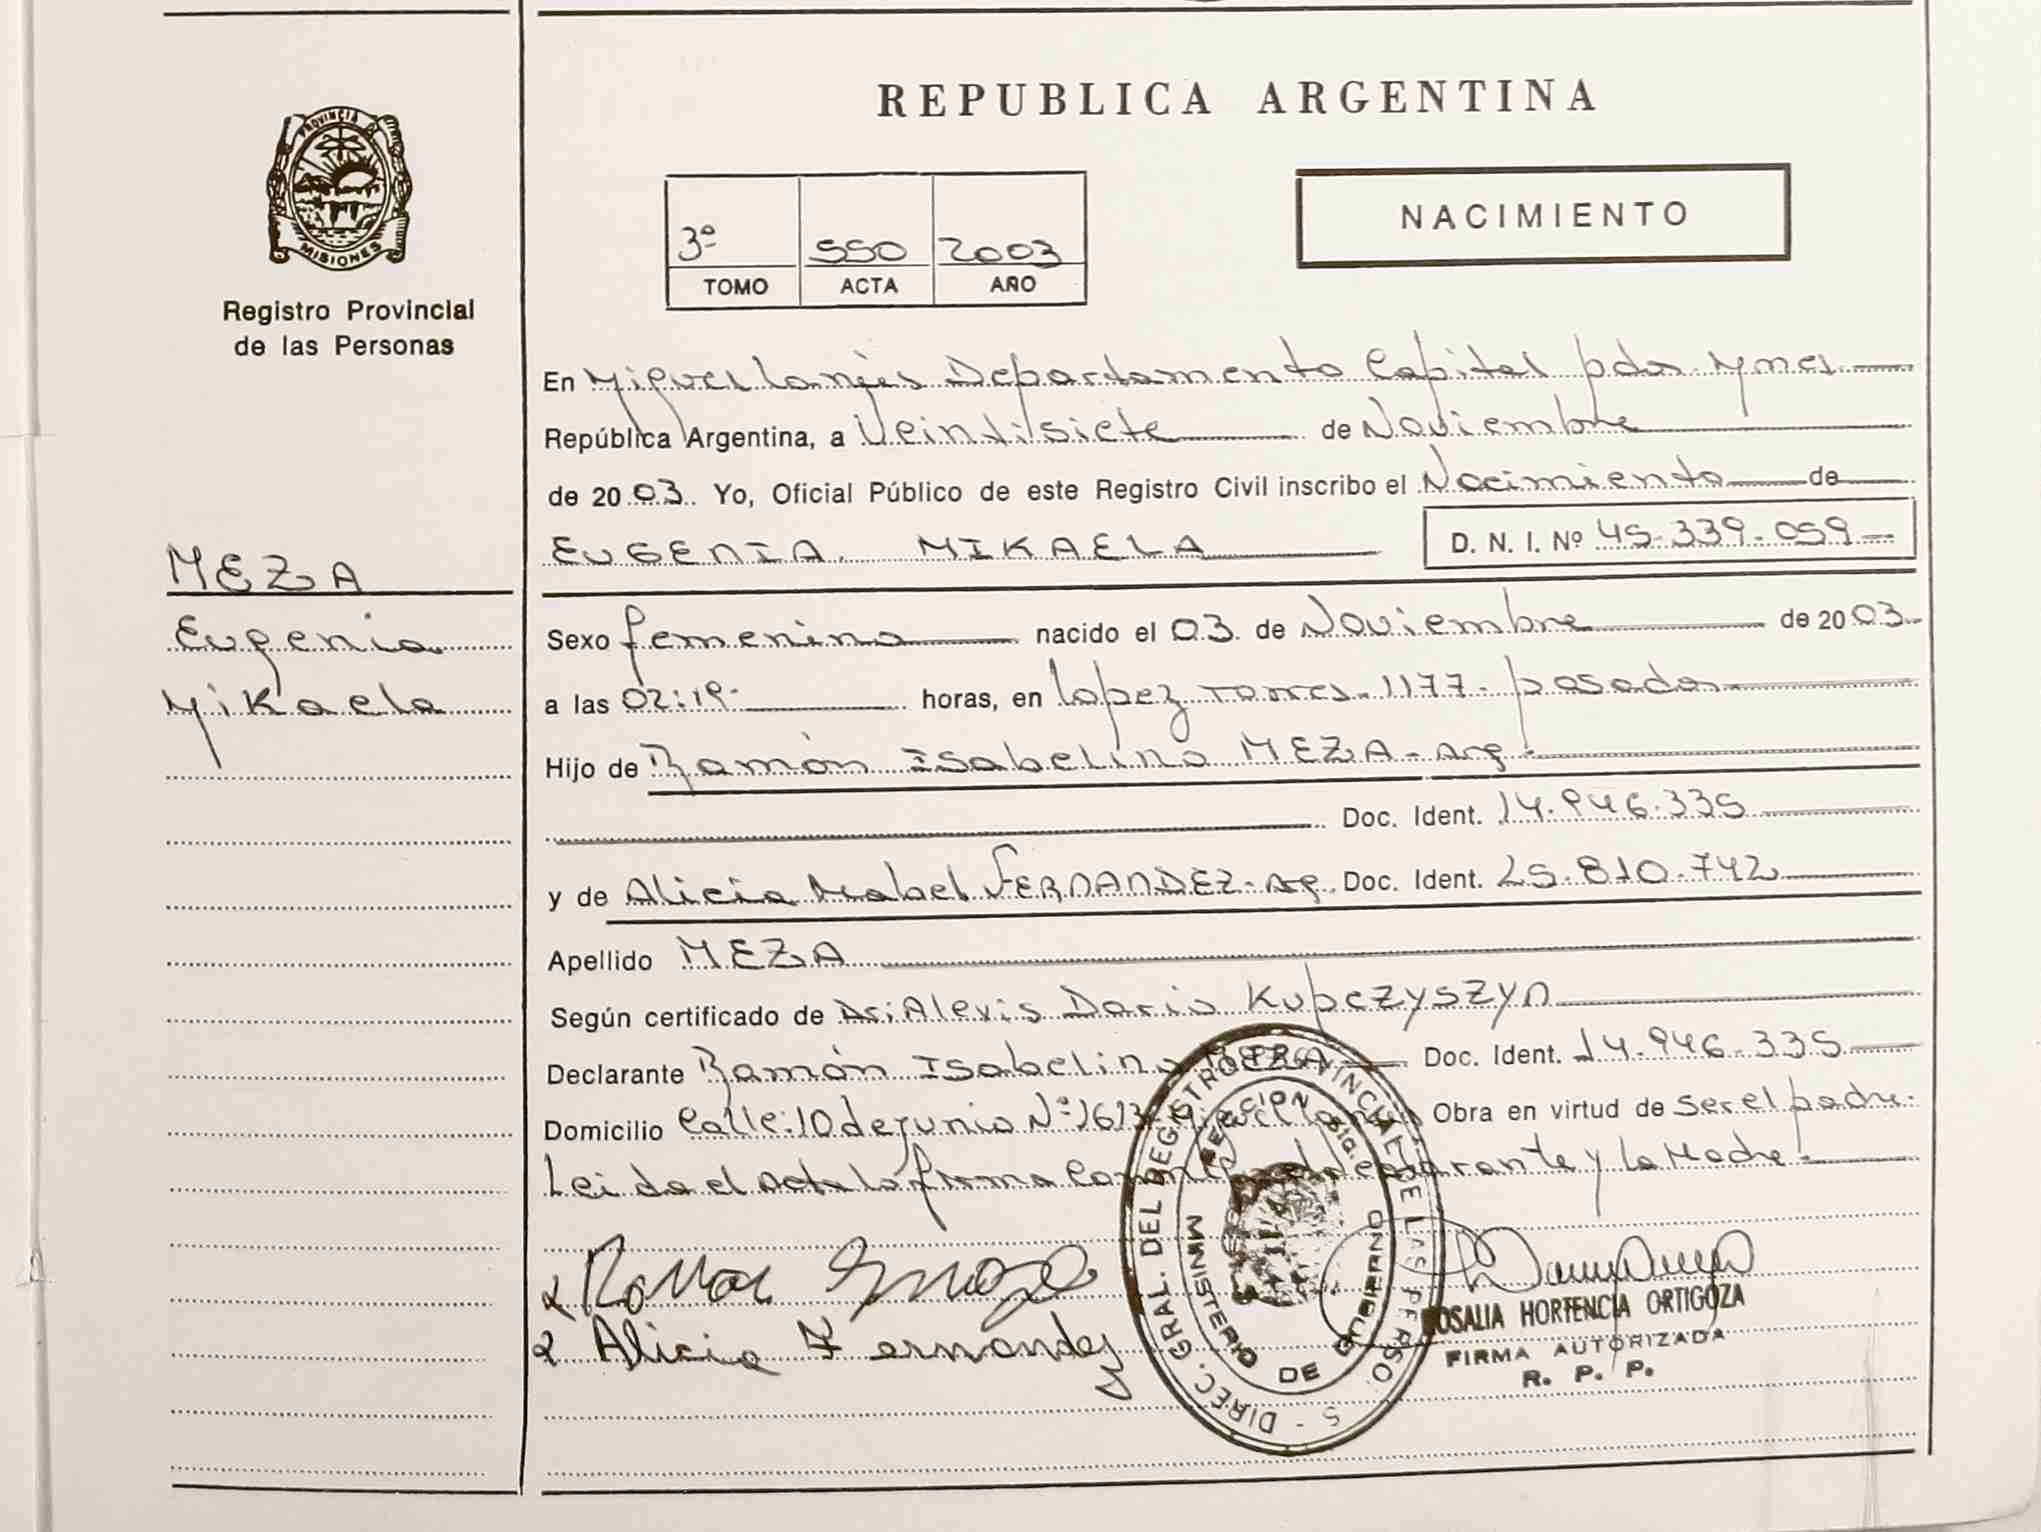 REPUBLICA ARGENTINA
PROVINCIA DE
MISIONES
Registro Provincial
de las Personas
3º 550 2003
TOMO ACTA AÑO
NACIMIENTO
En Miguel Lanús Departamento Capital pdas Mnes
República Argentina, a Veintisiete de Noviembre
de 2003. Yo, Oficial Público de este Registro Civil inscribo el Nacimiento de
EUGENIA MIKAELA D. N. I. Nº 45.339.059
MEZA
Eugenia
Mikaela
Sexo femenino nacido el 03 de Noviembre de 2003
a las 02:19 horas, en Lopez Torres 1177 - posadas
Hijo de Ramón Isabelino MEZA - Arg.
Doc. Ident. 14.946.335
y de Alicia Mabel FERNANDEZ - Ag. Doc. Ident. 25.810.742
Apellido MEZA
Según certificado de Dr: Alexis Dario Kupczyszyn
Declarante Ramón Isabelino MEZA Doc. Ident. 14.946.335
Domicilio Calle: 10 de junio Nº 1613 Miguel Lanús Obra en virtud de ser el padre.
Leida el Acta la firma Conmigo el declarante y la Madre.
Alicia Fernandez
DIREC. GRAL. DEL REGISTRO PROVINCIAL DE LAS PERSO. S
MINISTERIO DE GOBIERNO
ROSALIA HORTENCIA ORTIGOZA
FIRMA AUTORIZADA
R. P. P.